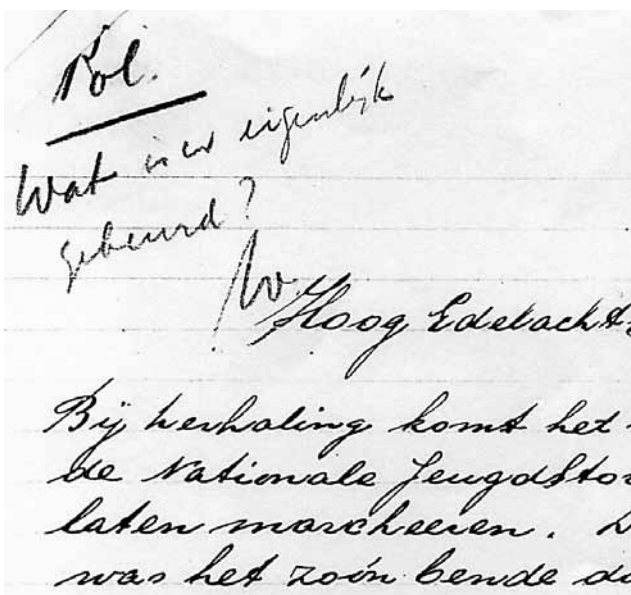 Pol.
Wat is er eigenlijk
gebeurd?
Hoog Edelacht
Bij herhaling komt het
de Nationale Jeugdsto
laten marcheeren. D
was het zoo'n bende d